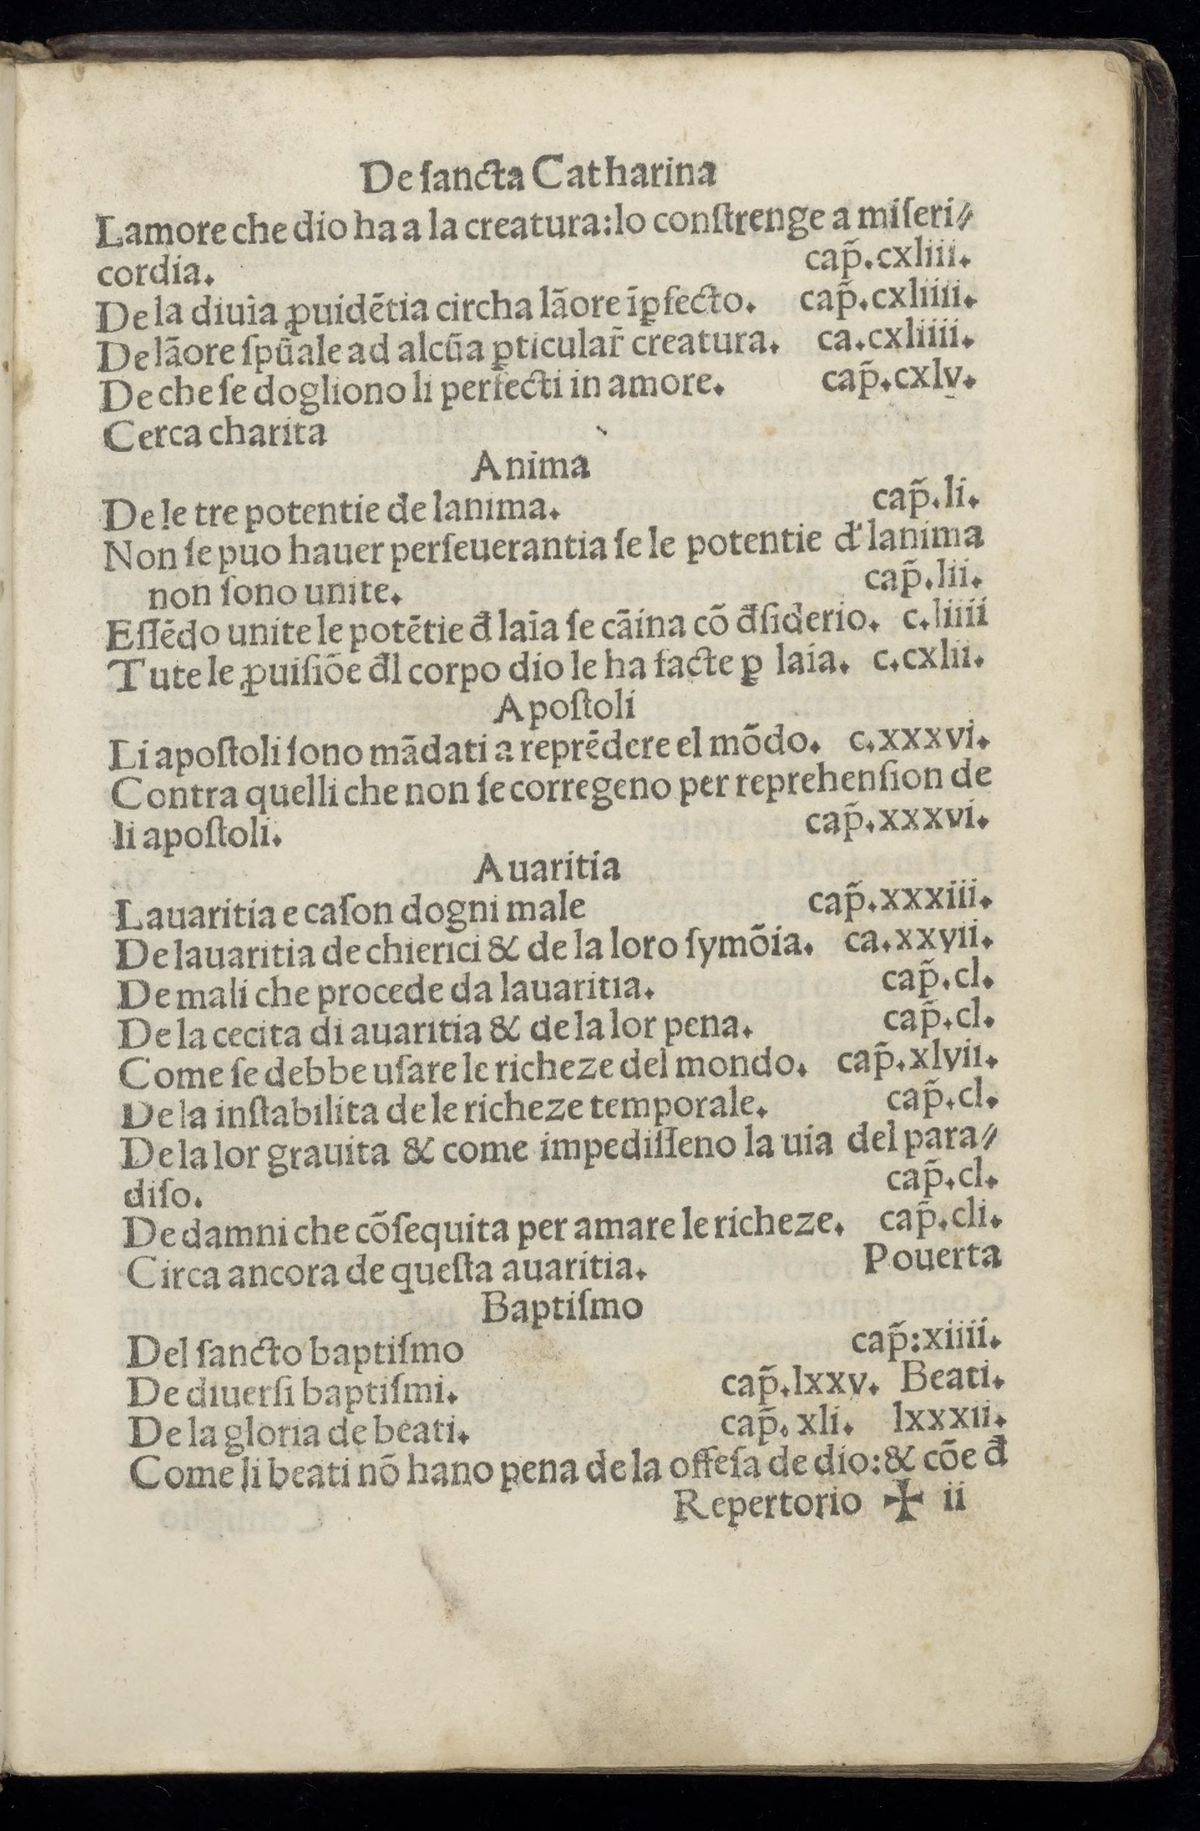 De ſancta Catharina
Lamore che dio ha a la creatura:lo conſtrenge a miſeri⸗
cordia. cap̃.cxliii.
De la diuĩa ꝓuidẽtia circha lãore ĩꝑfecto. cap̃.cxliiii.
De lãore ſpũale ad alcũa ꝑticular̃ creatura. ca.cxliiii.
De che ſe dogliono li perfecti in amore. cap̃.cxlv.
Cerca charita
Anima
De le tre potentie de lanima. cap̃.li.
Non ſe puo hauer perſeuerantia ſe le potentie d' lanima
non ſono unite. cap̃.lii.
Eſſẽdo unite le potẽtie đ laĩa ſe cãina cõ đſiderio. c.liiii
Tute le ꝓuiſiõe đl corpo dio le ha facte ꝑ laia. c.cxlii.
Apoſtoli
Li apoſtoli ſono mãdati a reprẽdere el mõdo. c.xxxvi.
Contra quelli che non ſe corregeno per reprehenſion de
li apoſtoli. cap̃.xxxvi.
Auaritia
Lauaritia e caſon dogni male cap̃.xxxiii.
De lauaritia de chierici & de la loro ſymõia. ca.xxvii.
De mali che procede da lauaritia. cap̃.cl.
De la cecita di auaritia & de la lor pena. cap̃.cl.
Come ſe debbe uſare le richeze del mondo. cap̃.xlvii.
De la inſtabilita de le richeze temporale. cap̃.cl.
De la lor grauita & come impediſſeno la uia del para⸗
diſo. cap̃.cl.
De damni che cõſequita per amare le richeze. cap̃.cli.
Circa ancora de queſta auaritia. Pouerta
Baptiſmo
Del ſancto baptiſmo cap̃:xiiii.
De diuerſi baptiſmi. cap̃.lxxv. Beati.
De la gloria de beati. cap̃. xli. lxxxii.
Come li beati nõ hano pena de la offeſa de dio:& cõe đ
Repertorio ✠ ii